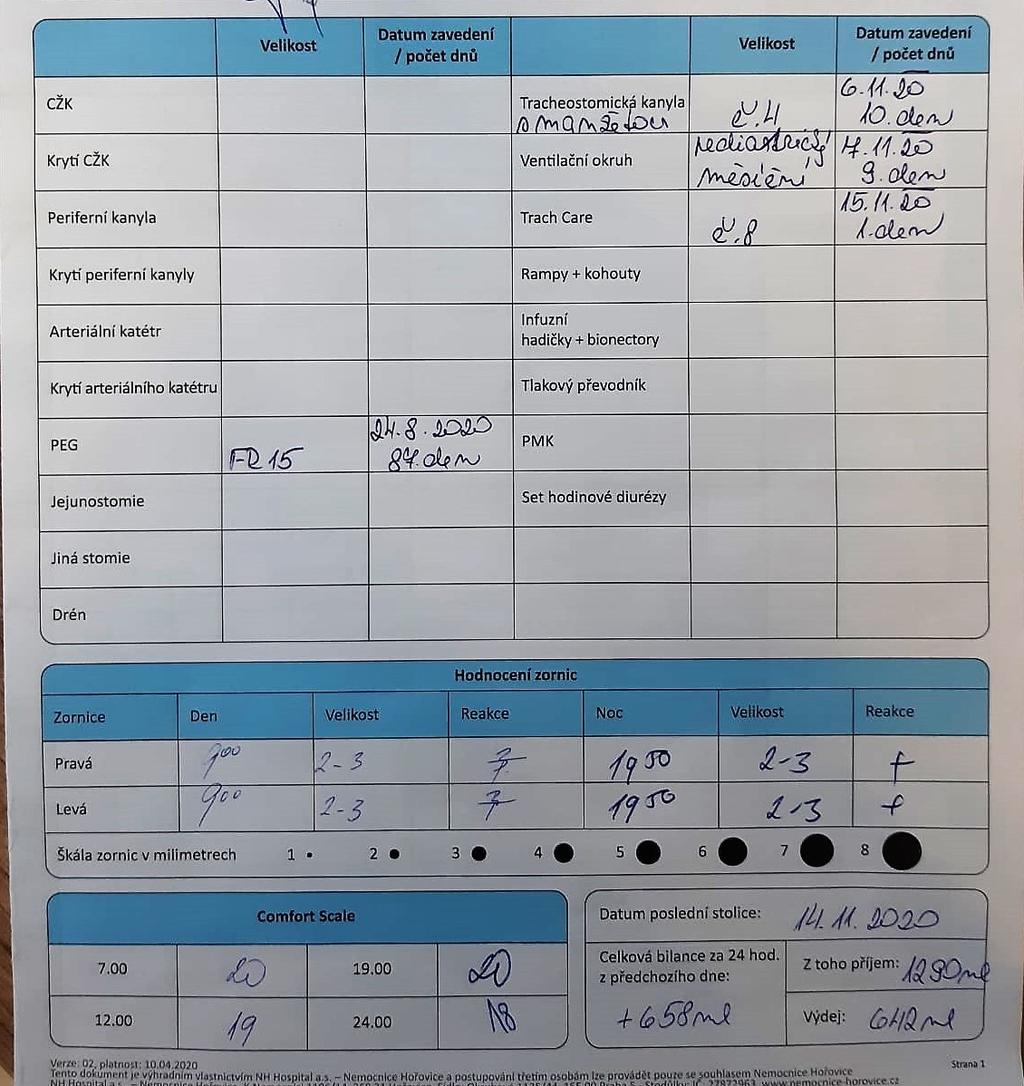 Velikost
Datum zavedení
/ počet dnů
Velikost
Datum zavedení
/ počet dnů
CŽK
Tracheostomická kanyla
s manžetou
č.4
6.11.20
10.den
Krytí CŽK
Ventilační okruh
měsíční
7.11.20
9.den
Periferní kanyla
Trach Care
č.8
15.11.20
1.den
Krytí periferní kanyly
Rampy + kohouty
Arteriální katétr
Infuzní
hadičky + bionectory
Krytí arteriálního katétru
Tlakový převodník
PEG
FR 15
24.8.2020
87.den
PMK
Jejunostomie
Set hodinové diurézy
Jiná stomie
Drén
Hodnocení zornic
Zornice Den Velikost Reakce Noc Velikost Reakce
Pravá 900 2-3 1950 2-3 +
Levá 900 2-3 1950 2-3 +
Škála zornic v milimetrech 1 2 3 4 5 6 7 8
Comfort Scale
7.00 20 19.00 20
12.00 19 24.00 18
Datum poslední stolice: 14.11.2020
Celková bilance za 24 hod.
z předchozího dne:
+658ml
Z toho příjem: 1290ml
Výdej: 642ml
Verze: 02, platnost: 10.04.2020
Strana 1
Tento dokument je výhradním vlastnictvím NH Hospital a.s. – Nemocnice Hořovice a postupování třetím osobám lze provádět pouze se souhlasem Nemocnice Hořovice